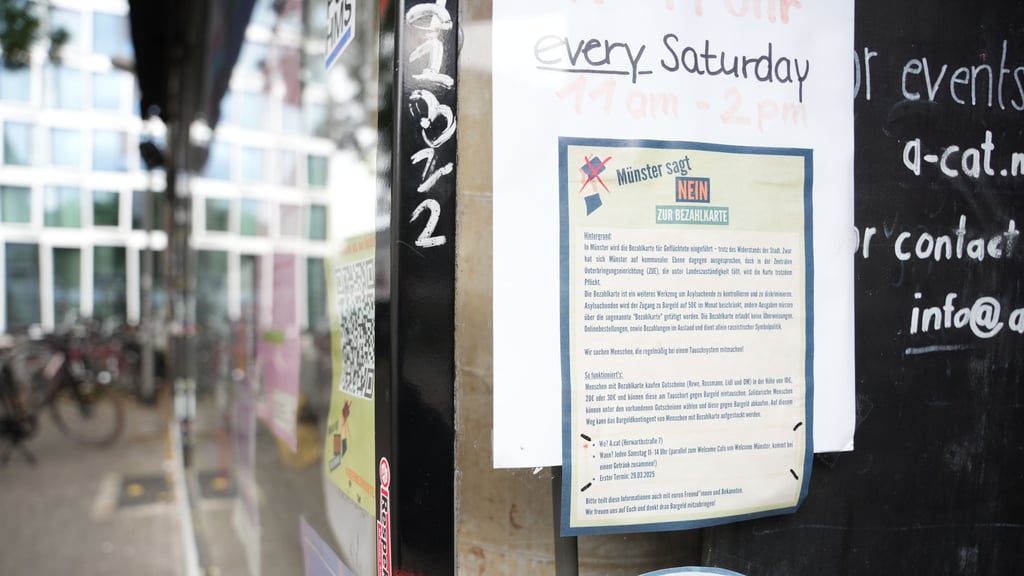 HMS
11-14 Uhr
every Saturday
11 am - 2 pm
Münster sagt
NEIN
ZUR BEZAHLKARTE
Hintergrund:
In Münster wird die Bezahlkarte für Geflüchtete eingeführt – trotz des Widerstands der Stadt. Zwar
hat sich Münster auf kommunaler Ebene dagegen ausgesprochen, doch in der Zentralen
Unterbringungseinrichtung (ZUE), die unter Landeszuständigkeit fällt, wird die Karte trotzdem
Pflicht.
Die Bezahlkarte ist ein weiteres Werkzeug um Asylsuchende zu kontrollieren und zu diskriminieren.
Asylsuchenden wird der Zugang zu Bargeld auf 50€ im Monat beschränkt, andere Ausgaben müssen
über die sogenannte "Bezahlkarte" getätigt werden. Die Bezahlkarte erlaubt keine Überweisungen,
Onlinebestellungen, sowie Bezahlungen im Ausland und dient allein rassistischer Symbolpolitik.
Wir suchen Menschen, die regelmäßig bei einem Tauschsystem mitmachen!
So funktioniert's:
Menschen mit Bezahlkarte kaufen Gutscheine (Rewe, Rossmann, Lidl und DM) in der Höhe von 10€,
20€ oder 30€ und können diese am Tauschort gegen Bargeld eintauschen. Solidarische Menschen
können unter den vorhandenen Gutscheinen wählen und diese gegen Bargeld abkaufen. Auf diesem
Weg kann das Bargeldkontingent von Menschen mit Bezahlkarte aufgestockt werden.
• Wo? A.cat (Herwarthstraße 7)
• Wann? Jeden Samstag 11- 14 Uhr (parallel zum Welcome Cafe von Welcome Münster, kommt bei
einem Getränk zusammen!)
• Erster Termin: 29.03.2025
Bitte teilt diese Informationen auch mit euren Freund*innen und Bekannten.
Wir freuen uns auf Euch und denkt dran Bargeld mitzubringen!
or events
a-cat.n
or contact
info@a